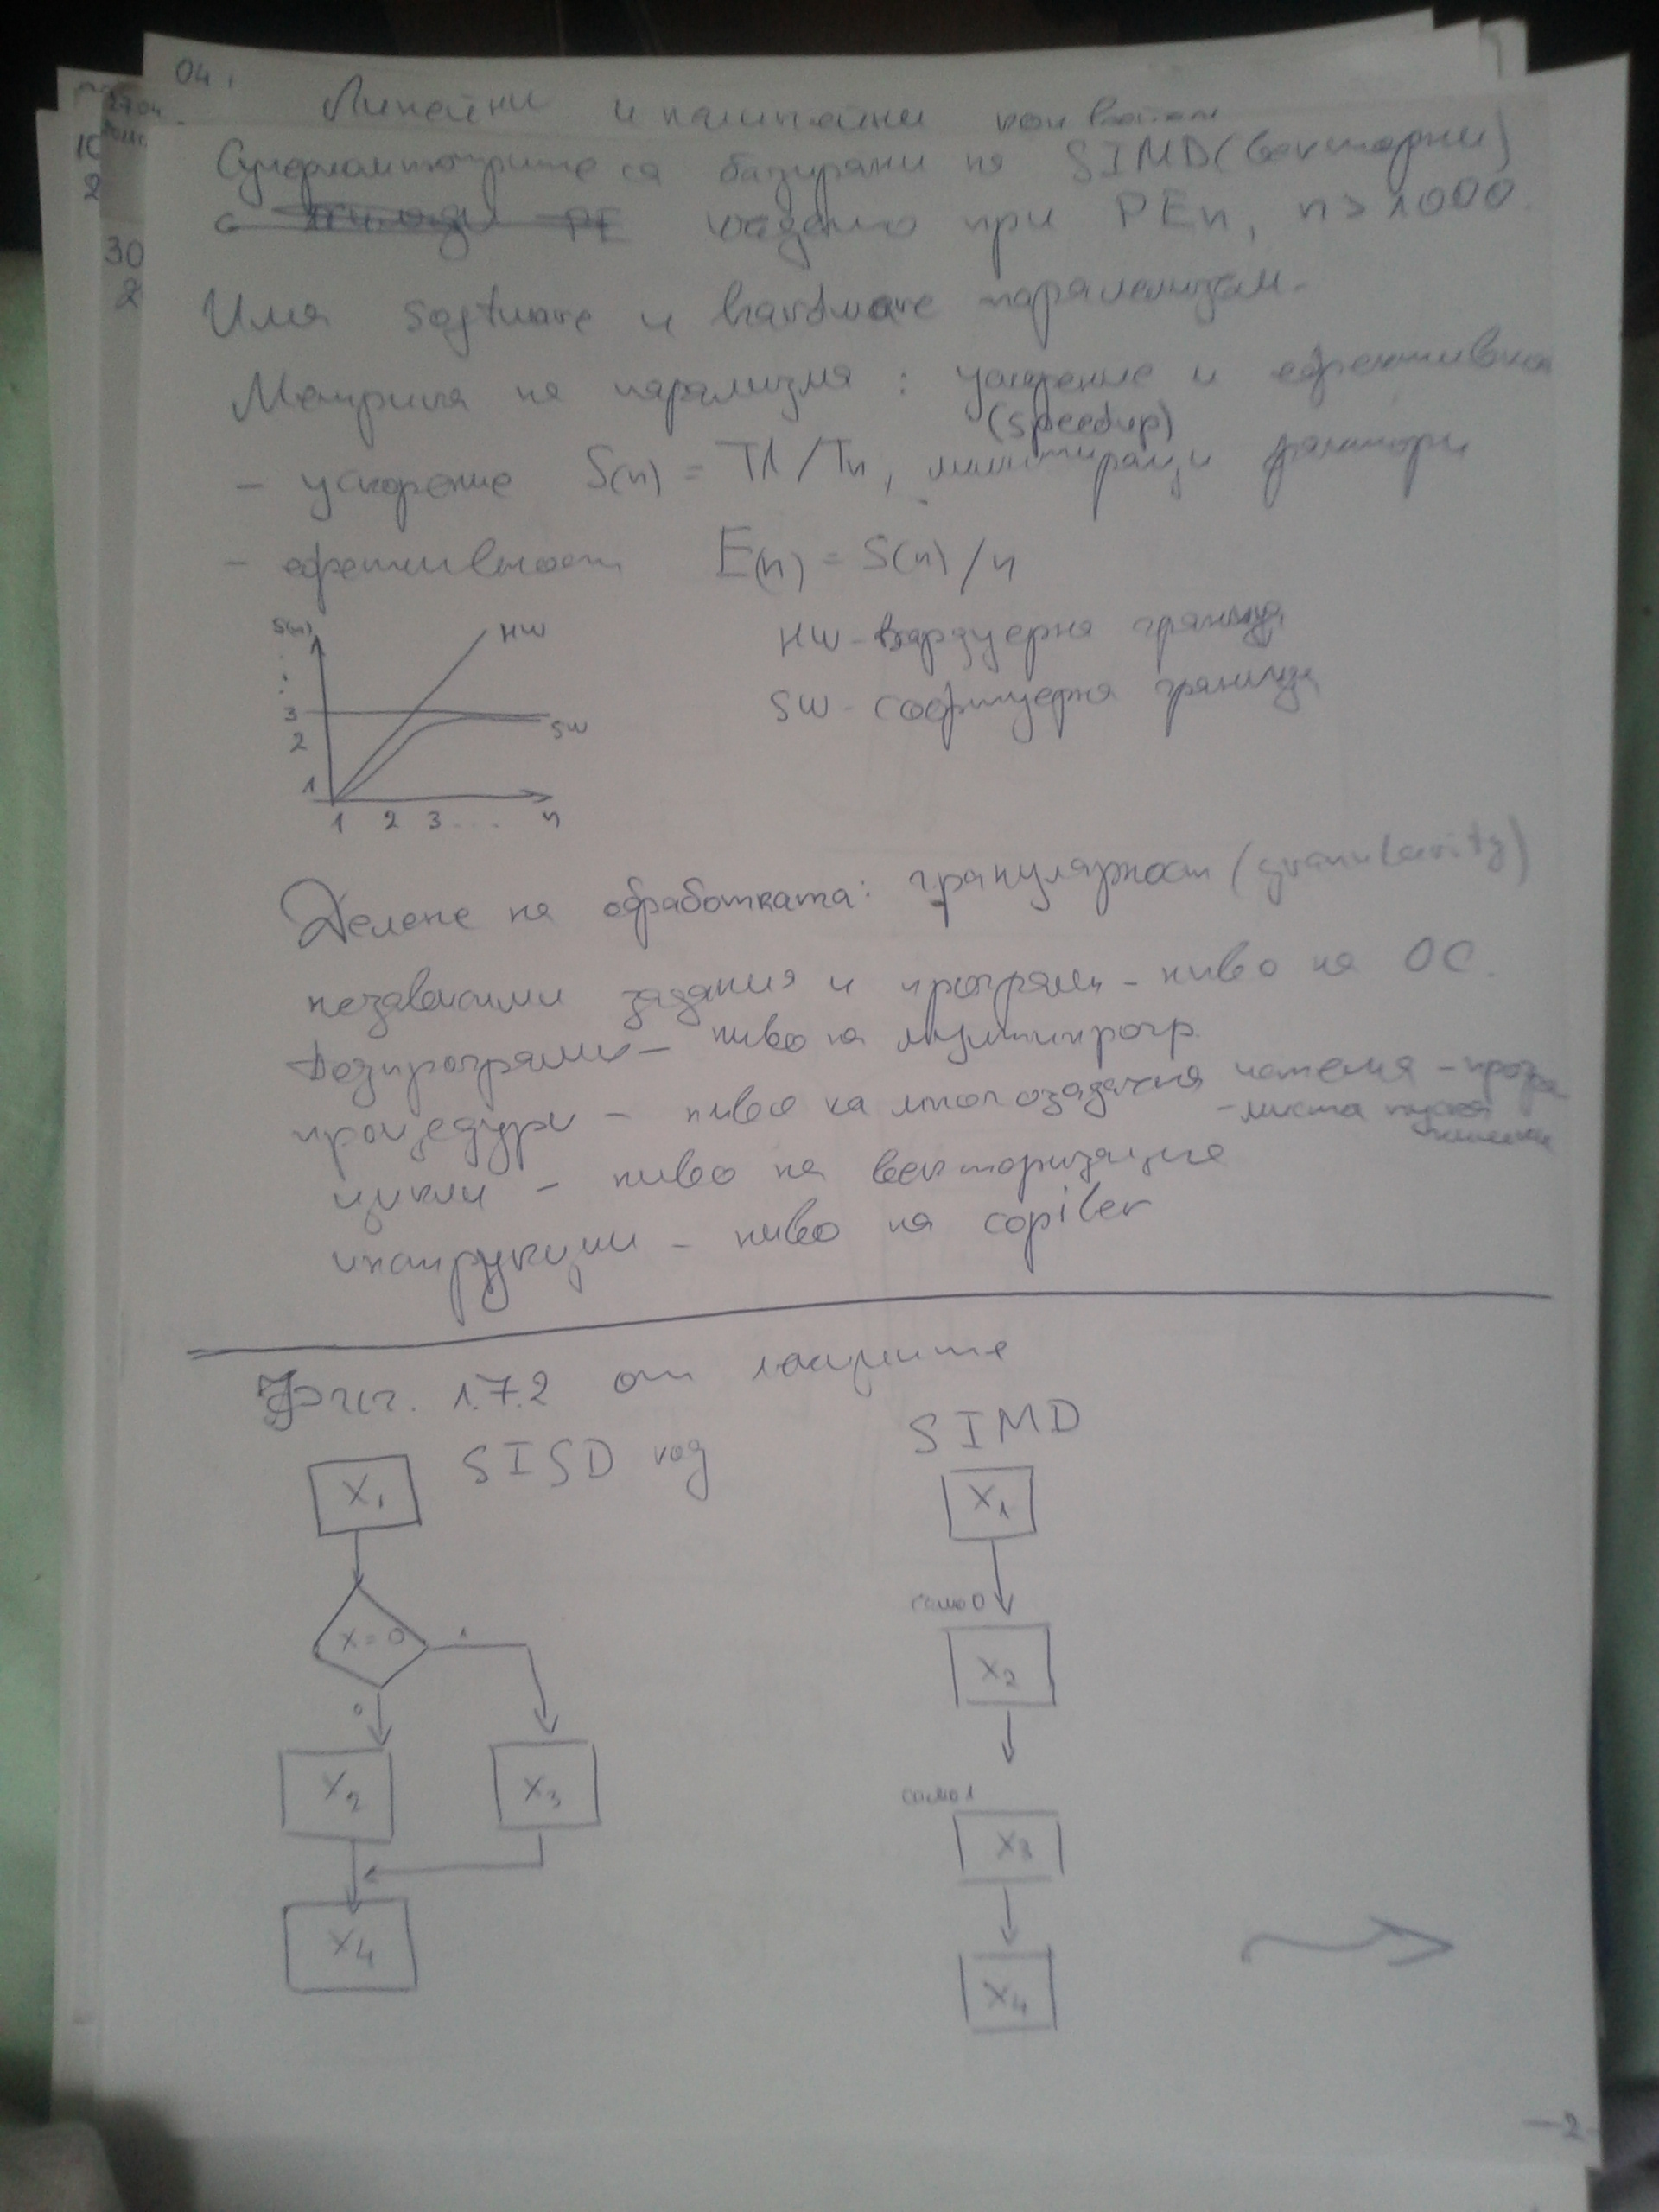 04.
Линейни и нелинейни
Суперкомпютрите са базирани на SIMD (векторни)
с PE при PEn, n > 1000.
Има software и hardware паралелизъм.
Метрика на парализма: ускорение и ефективност
(speedup)
- ускорение S(n) = T1/Tn, лимитиращи фактори
- ефективност E(n) = S(n)/n
S(n) HW
HW - хардуерна граница
SW - софтуерна граница
3
SW
2
1
1 2 3 ... n
Делене на обработката: грануларност (granularity)
независими задания и програми - ниво на ОС.
подпрограми - ниво на мултипрогр.
процедури - ниво на многозадачния
цикли - ниво на векторизация
инструкции - ниво на copiler
Фиг. 1.7.2 от лекциите
SISD код SIMD
X1 X1
само 0
x=0 1 X2
0
X2 X3
само 1
X3
X4 X4
2